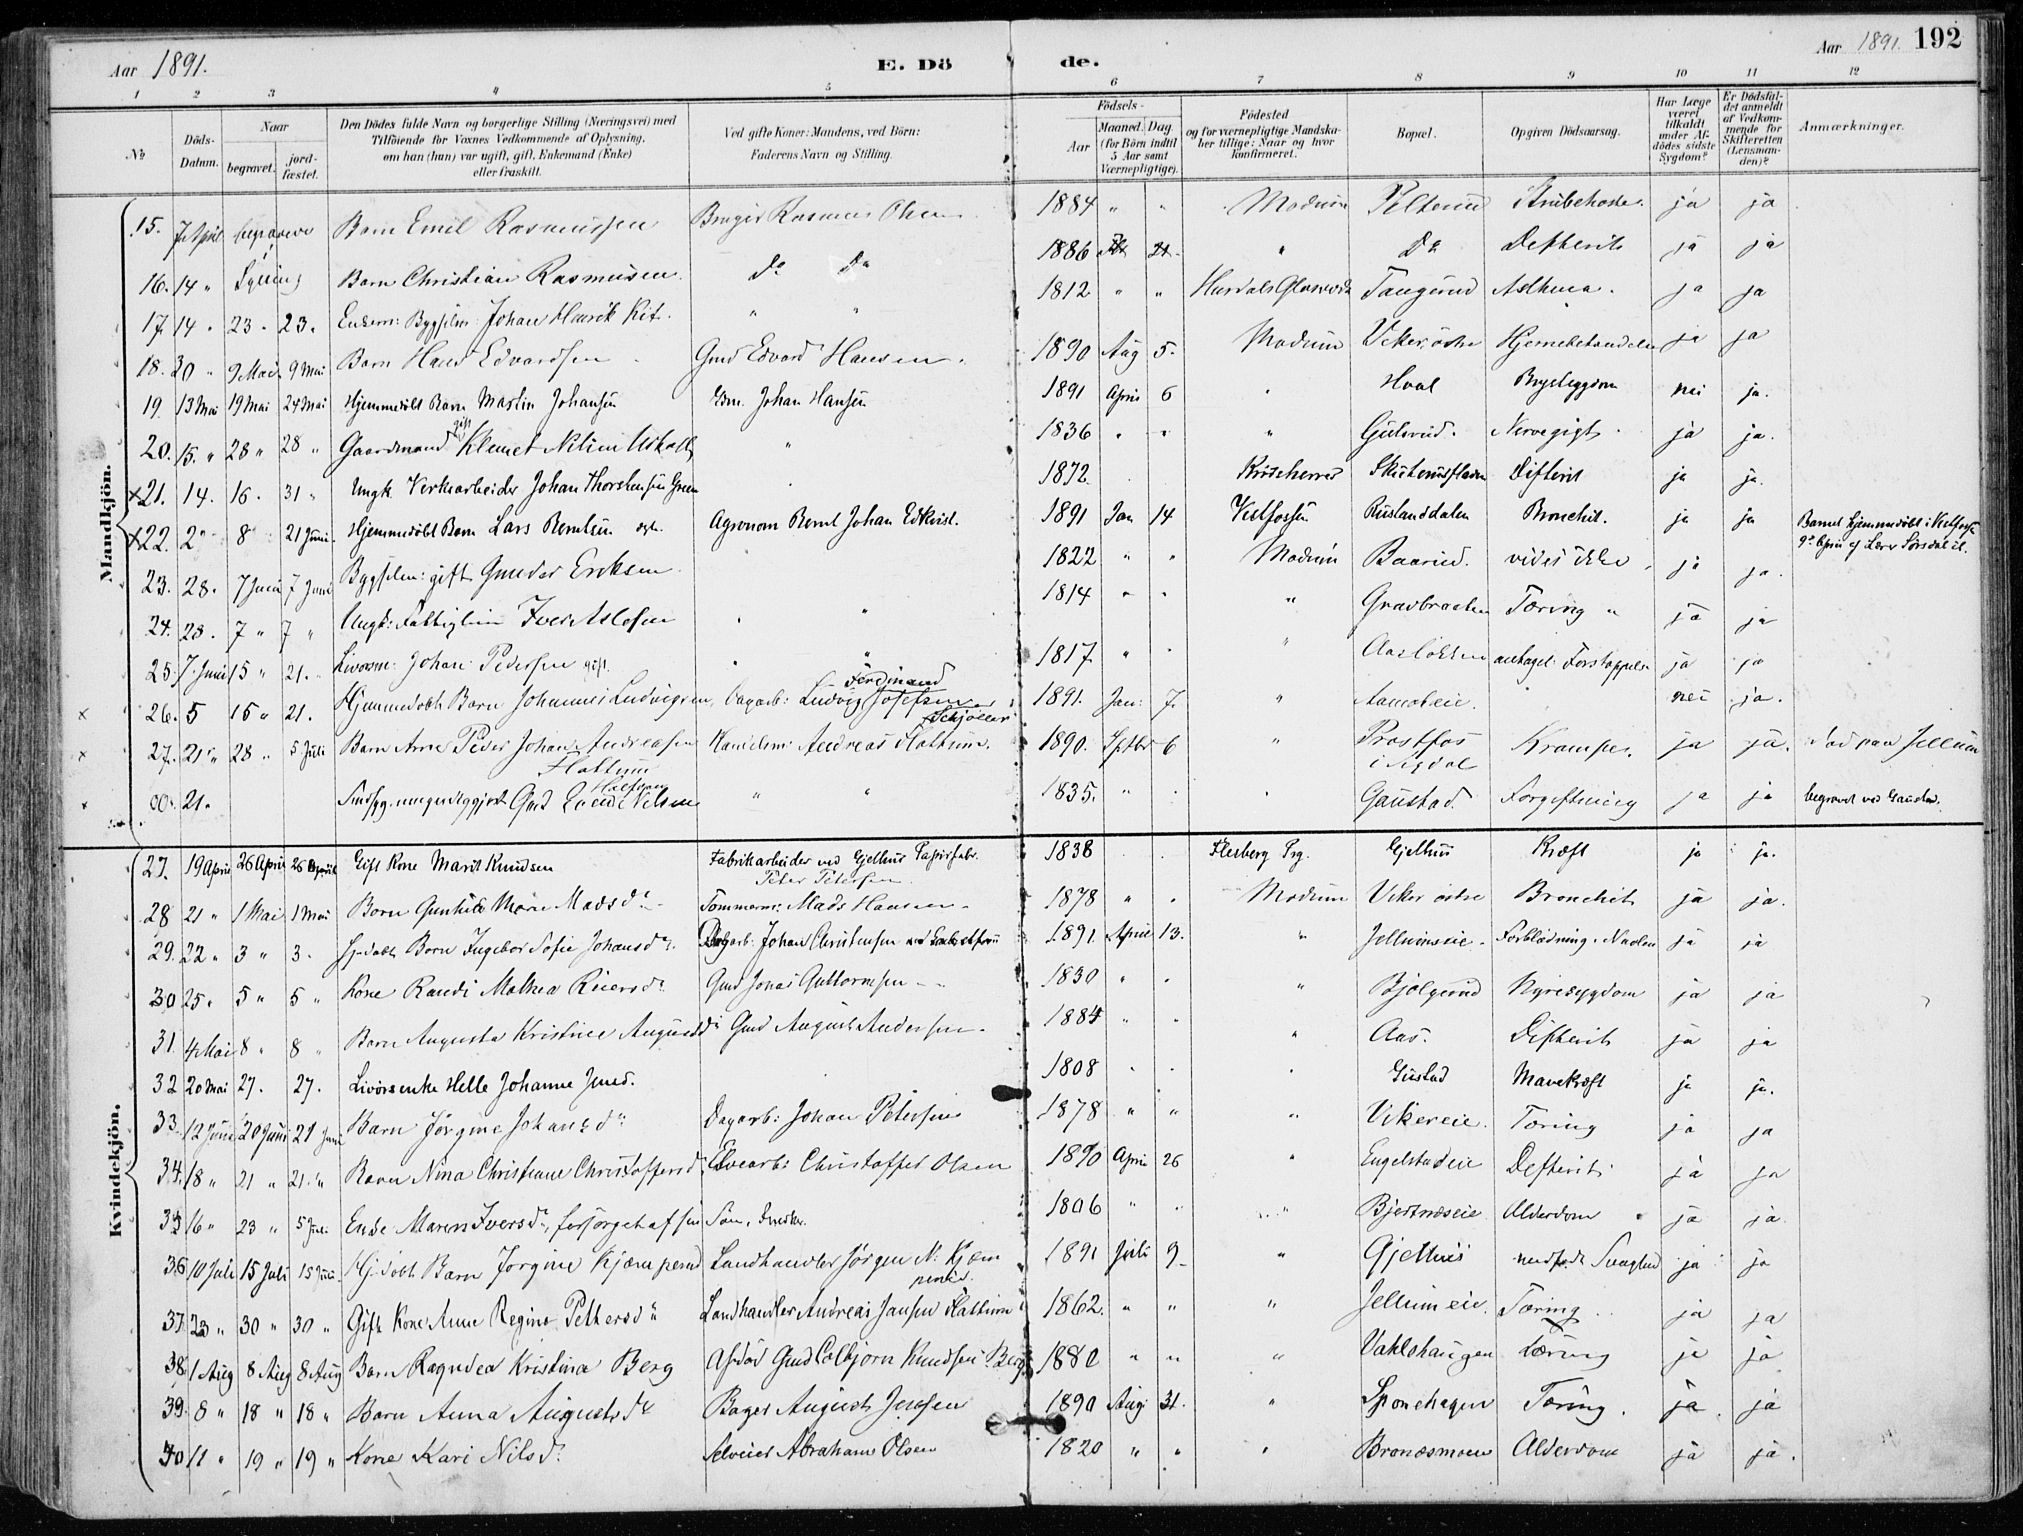 Aar 1891. E. Dö de. Aar 1891. 192
1 2 3 4 5 6 7 8 9 10 11 12
No
Döds-Datum.
Naar begravet. jordfæstet.
Den Dödes fulde Navn og borgerlige Stilling (Næringsvei) med Tilföiende for Voxnes Vedkommende af Oplysning, om han (hun) var ugift, gift, Enkemand (Enke) eller fraskilt.
Ved gifte Koner: Mandens, ved Börn: Faderens Navn og Stilling.
Födsels- Aar Maaned. Dag. (for Börn indtil 5 Aar samt Værnepligtige).
Födested og for værnepligtige Mandskaber tillige: Naar og hvor konfirmeret.
Bopæl.
Opgiven Dödsaarsag.
Har Læge været tilkaldt under Afdödes sidste Sygdom?
Er Dödsfaldet anmeldt af Vedkommende for Skifteretten (Lensmanden)?
Anmærkninger.
Mandkjön.
15. 7 April begravne Barn Emil Rasmussen Bruger Rasmus Olsen 1884 " " Modum Strubehoste. ja ja
16. 14 " Sylling Barn Christian Rasmussen Do Do 1886 " Do Deftherit ja ja
17. 14 " 23 " 23. Johan Henrik Kit. " " 1812 " " Hurdals Glasværk Taugerud Asthma. ja ja
18. 30 " 9 Mai 9 Mai Barn Hans Edvardsen Gmd Edvard Hansen. 1890 Aug 5. Modum Viker östre Hjernebetændelse ja ja
19 13 Mai 19 Mai 24 Mai Hjemmedöbt Barn Martin Johansen Johan Hansen 1891 April 6 " Hval Brystsygdom nei ja.
20. 15. " 28 " 28 " Gaardmand gift Klemet " 1836 " " " Gulsrud. Nervegigt ja ja.
x 21. 14. 16. 31 " Ungk. Verksarbeider Johan Thorstensen Green 1872 Difterit ja ja.
x 22. 2 " 8 21 Juni Hjemmedöbt Barn Lars Berntsen Agronom Bernt Johan Edkvist. 1891 Jan 14 Vestfossen Ruslanddalen Bronchit. ja ja Barnet hjemmedöbt i Vestfossen
23. 28. 7 Juni 7 Juni gift Gunder Eriksen 1822 " " Modum Baarud. vides ikke ja ja.
24. 28. 7 " 7 " Ungk: Fattiglem Iver Aslesen " " 1814 " " " Gravbraaten Tæring " ja ja
25. 7 Juni 15 " 21. " Johan Pedersen gift. " " 1817 " " " antagel. Forstoppelse ja ja
x 26. 5 15 " 21. Hjemmedöbt Barn Johannes Ludvigsen, Dagarb: Ludvig Ferdinand Josefsen 1891. Jan: 7. " Aamoteie. nei ja.
x 27. 21 " 28 " 5 Juli Barn Arne Peder Johan Andreassen Flattum Handelsm: Andreas Flattum. 1890. Sptbr 6 " Prostfos i Sigdal Kramper. ja ja. Död paa Jellum
x 00. 21. Gmd Nilsen " " 1835. " " Gaustad. Forgiftning ja ja begravet ved Gaustad.
Kvindekjön.
27. 19 April 26 April 26 April Gift Kone Marit Knudsen Fabrikarbeider ved Gjethus Papirfabr. Peter Petersen. 1838 Flesberg Prg. Gjethus Kræft ja ja.
28 21 " 1 Mai 1 Mai Barn Gunhild Marie Madsdr Tömmerm: Mads Hansen 1878 " " Modum Viker östre Bronchit ja ja.
29. 22 " 3 " 3. Hj.döbt Barn Ingebor Sofie Johansdr. Dagarb: Johan Christensen 1891. April 13. " Jellumseie. Forblödning. Navlen ja ja
30 25 " 5 " 5 " Kone Randi Mathea Reiersdr Gmd Jonas Guttormsen 1830 " " " Bjölgerud Nyresygdom ja ja
31. 4 Mai 8 " 8 " Barn Augusta Kristine Augustsdr Gmd August Andersen. 1884 " " " Aas. Difterit ja ja
32 20 Mai 27. 27. Livörsenke Helle Johanne Jensd. 1808 Gustad Mavekræft ja ja.
33. 12 Juni 20 Juni 21 Juni Barn Jörgine Johansdr Dagarb: Johan Petersen 1878 " " " Vikereie. Tæring ja ja
34. 18 " 21 " 21. " Barn Nina Christiane Christoffersdr Elvearb: Christoffer Olsen 1890 April 26 " Engelstadeie Defterit ja ja
35 16 " 23 " 5 Juli Enke Maren Iversdr, forsörget af sin Sön, Snedker. 1806 " " " Bjertnæseie Alderdom ja ja.
36 10 Juli 15 Juli 15 Juli Hj.döbt Barn Jörgine Kjæmperud Landhandler Jörgen N. Kjæmperud. 1891 Juli 9 " Gjethus medfödt Svaghed ja ja
37. 23 " 30 " 30 " Gift Kone Anne Regine Pettersdr Landhandler Andreas Jansen Flattum 1862. " " " Jellumeie. Tæring ja ja
38. 1 Aug 8 Aug 8 Aug Barn Ragndea Kristina Berg Afdöd Gmd Colbjörn Knudsen Berg 1880 " " " Vahlshaugen Tæring ja ja
39. 8 " 18 " 18 " Barn Anna Augustsdr Bager August Jensen 1890 Aug 31. " Sponehagen Tæring. ja. ja
40 11 " 19 " 19 " Kone Kari Nilsdr Selveier Abraham Olsen 1820 " " " Brænæsmoen Alderdom ja ja.